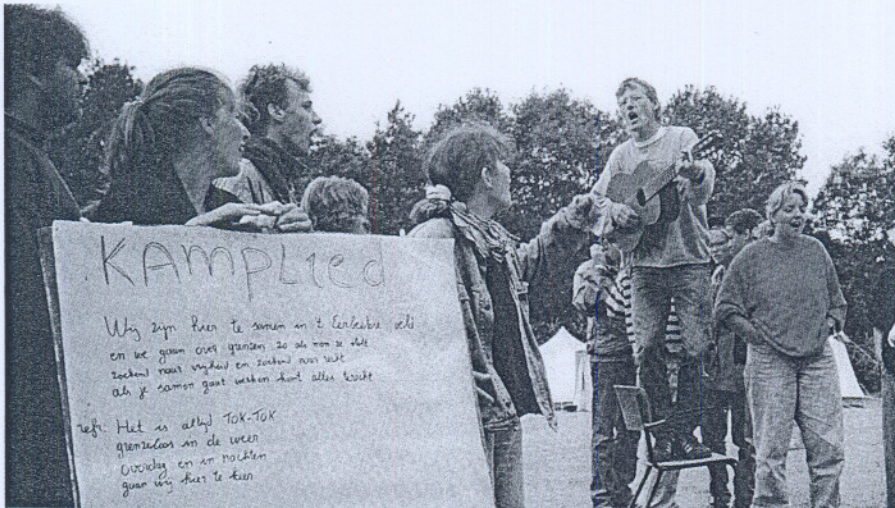 KAMPLIED
Wij zijn hier te samen in 't Eerbeekse veld
en we gaan over grenzen zo als men ze stelt
zoekend naar vrijheid en zoekend naar recht
als je samen gaat werken komt alles terecht
refr: Het is altijd TOK-TOK
grenzeloos in de weer
overdag en in nachten
gaan wij hier te keer